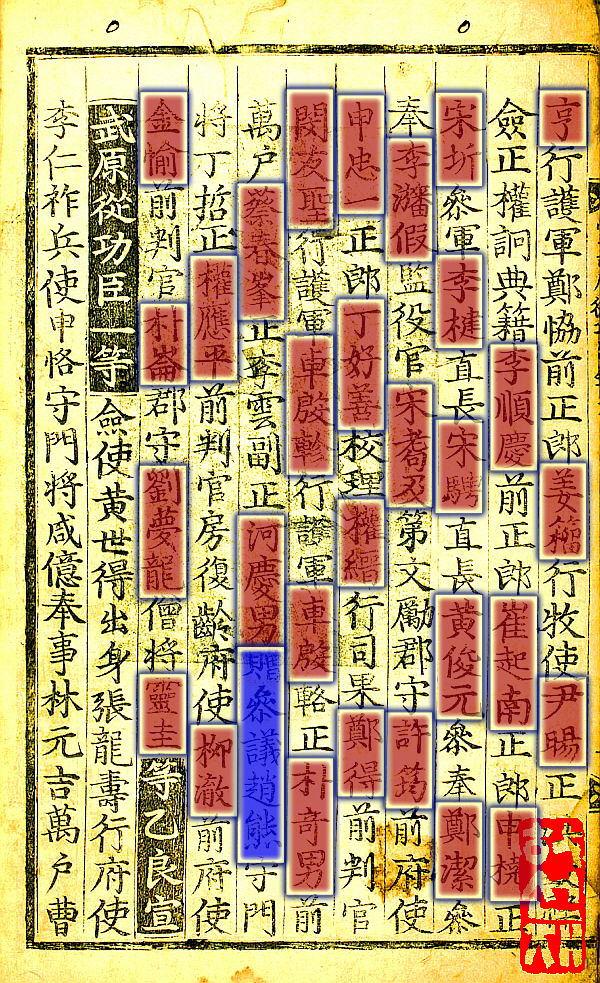 亨行護軍鄭恊前正郎姜籒行牧使尹暘正
僉正權詗典籍李順慶前正郎崔起南正郎申橈正
宋圻叅軍李楗直長宋騁直長黃俊元叅奉鄭潔叅
奉李瀋假監役官宋耉及第文勵郡守許筠前府使
申忠一正郎丁好善校理權縉行司果鄭得前判官
閔茇聖行護軍車殷軫行護軍車殷輅正朴奇男前
萬户蔡春峯正李雲副正河慶男贈叅議趙熊守門
將丁哲正權應平前判官房復齡府使柳澈前府使
金愉前判官朴崙郡守劉夢龍僧將靈圭等乙良宣
武原從功臣一等僉使黃世得出身張龍壽行府使
李仁祚兵使申恪守門將咸億奉事林元吉萬户曹